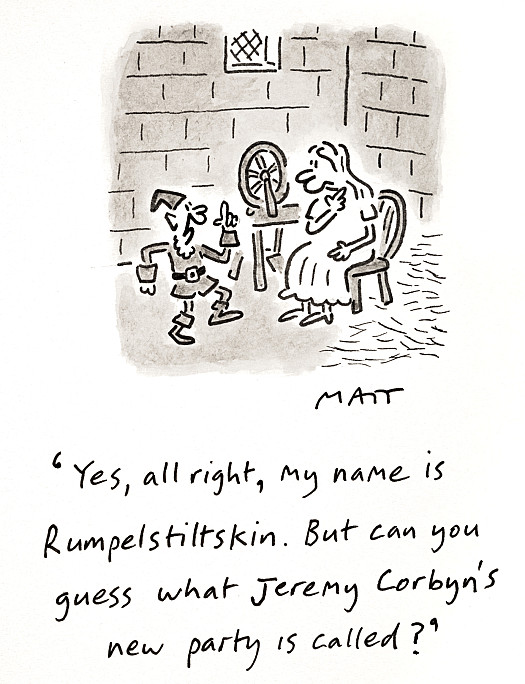 MATT
‘Yes, all right, my name is
Rumpelstiltskin. But can you
guess what Jeremy Corbyn's
new party is called?’